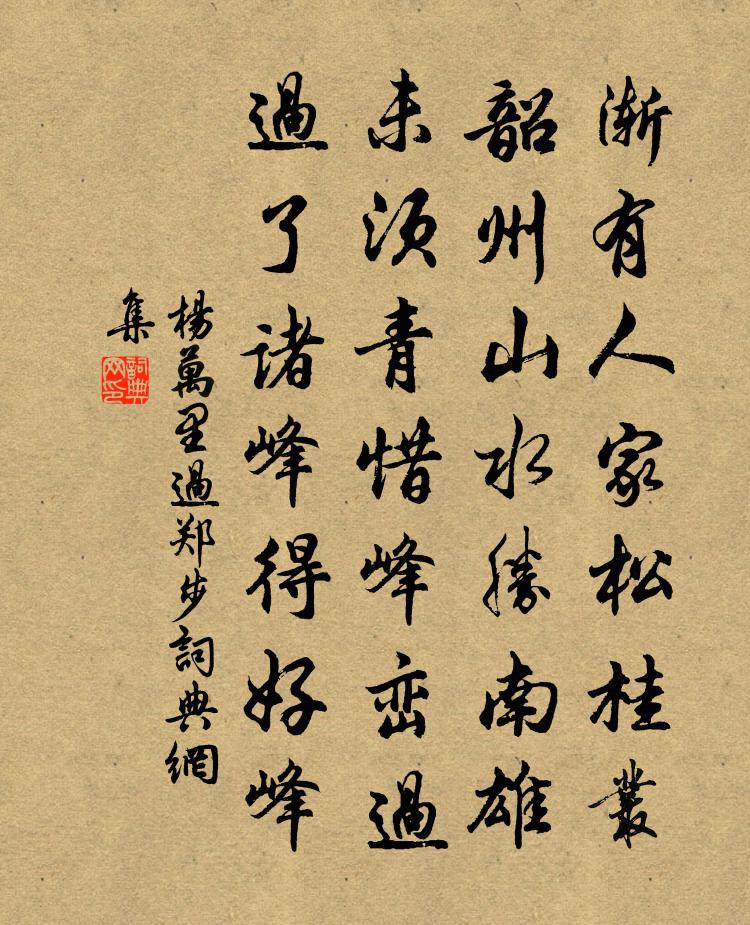 渐有人家松桂叢
韶州山水勝南雄
未須青惜峰峦過
過了諸峰得好峰
楊萬里過郑步詞典網
集
詞典網印